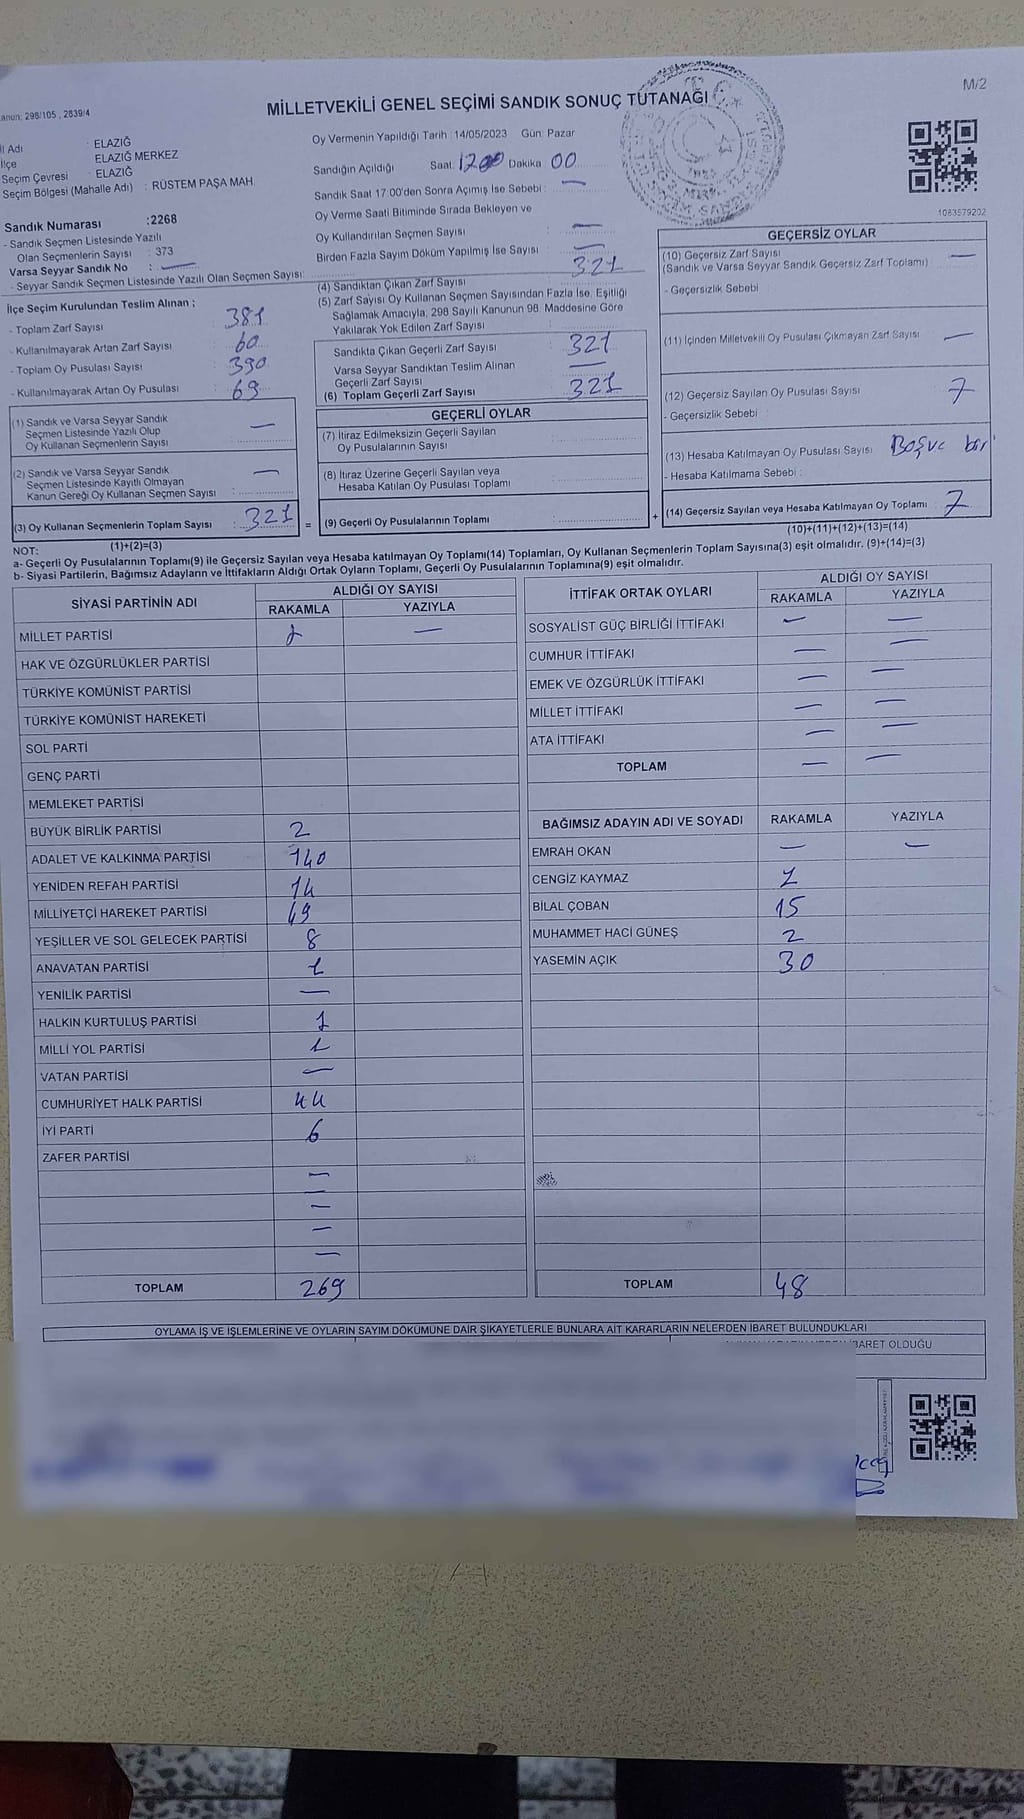 M/2
anun: 298/105 , 2839/4
MİLLETVEKİLİ GENEL SEÇİMİ SANDIK SONUÇ TUTANAĞI
İl Adı : ELAZIĞ
İlçe : ELAZIĞ MERKEZ
Seçim Çevresi : ELAZIĞ
Seçim Bölgesi (Mahalle Adı) : RÜSTEM PAŞA MAH.
Sandık Numarası :2268
- Sandık Seçmen Listesinde Yazılı
Olan Seçmenlerin Sayısı : 373
Varsa Seyyar Sandık No : —
- Seyyar Sandık Seçmen Listesinde Yazılı Olan Seçmen Sayısı:
Oy Vermenin Yapıldığı Tarih : 14/05/2023 Gün: Pazar
Sandığın Açıldığı Saat: Dakika 00
Sandık Saat 17:00'den Sonra Açımış İse Sebebi : —
Oy Verme Saati Bitiminde Sırada Bekleyen ve
Oy Kullandırılan Seçmen Sayısı : —
Birden Fazla Sayım Döküm Yapılmış İse Sayısı : —
1083579202
İlçe Seçim Kurulundan Teslim Alınan ;
- Toplam Zarf Sayısı : 381
- Kullanılmayarak Artan Zarf Sayısı : 60
- Toplam Oy Pusulası Sayısı : 390
- Kullanılmayarak Artan Oy Pusulası : 69
(1) Sandık ve Varsa Seyyar Sandık
Seçmen Listesinde Yazılı Olup
Oy Kullanan Seçmenlerin Sayısı —
(2) Sandık ve Varsa Seyyar Sandık
Seçmen Listesinde Kayıtlı Olmayan
Kanun Gereği Oy Kullanan Seçmen Sayısı : —
(3) Oy Kullanan Seçmenlerin Toplam Sayısı : 321 =
(1)+(2)=(3)
(4) Sandıktan Çıkan Zarf Sayısı : 321
(5) Zarf Sayısı Oy Kullanan Seçmen Sayısından Fazla İse, Eşitliği
Sağlamak Amacıyla, 298 Sayılı Kanunun 98. Maddesine Göre
Yakılarak Yok Edilen Zarf Sayısı :
Sandıkta Çıkan Geçerli Zarf Sayısı : 321
Varsa Seyyar Sandıktan Teslim Alınan
Geçerli Zarf Sayısı : —
(6) Toplam Geçerli Zarf Sayısı : 321
GEÇERLİ OYLAR
(7) İtiraz Edilmeksizin Geçerli Sayılan
Oy Pusulalarının Sayısı :
(8) İtiraz Üzerine Geçerli Sayılan veya
Hesaba Katılan Oy Pusulası Toplamı :
(9) Geçerli Oy Pusulalarının Toplamı : +
GEÇERSİZ OYLAR
(10) Geçersiz Zarf Sayısı : —
(Sandık ve Varsa Seyyar Sandık Geçersiz Zarf Toplamı)
- Geçersizlik Sebebi :
(11) İçinden Milletvekili Oy Pusulası Çıkmayan Zarf Sayısı : —
(12) Geçersiz Sayılan Oy Pusulası Sayısı : 7
- Geçersizlik Sebebi :
(13) Hesaba Katılmayan Oy Pusulası Sayısı :
- Hesaba Katılmama Sebebi :
(14) Geçersiz Sayılan veya Hesaba Katılmayan Oy Toplamı : 7
(10)+(11)+(12)+(13)=(14)
NOT:
a- Geçerli Oy Pusulalarının Toplamı(9) ile Geçersiz Sayılan veya Hesaba katılmayan Oy Toplamı(14) Toplamları, Oy Kullanan Seçmenlerin Toplam Sayısına(3) eşit olmalıdır. (9)+(14)=(3)
b- Siyasi Partilerin, Bağımsız Adayların ve İttifakların Aldığı Ortak Oyların Toplamı, Geçerli Oy Pusulalarının Toplamına(9) eşit olmalıdır.
SİYASİ PARTİNİN ADI ALDIĞI OY SAYISI
RAKAMLA YAZIYLA
MİLLET PARTİSİ —
HAK VE ÖZGÜRLÜKLER PARTİSİ
TÜRKİYE KOMÜNİST PARTİSİ
TÜRKİYE KOMÜNİST HAREKETİ
SOL PARTİ
GENÇ PARTİ
MEMLEKET PARTİSİ
BÜYÜK BİRLİK PARTİSİ 2
ADALET VE KALKINMA PARTİSİ 140
YENİDEN REFAH PARTİSİ 14
MİLLİYETÇİ HAREKET PARTİSİ 49
YEŞİLLER VE SOL GELECEK PARTİSİ 8
ANAVATAN PARTİSİ 1
YENİLİK PARTİSİ —
HALKIN KURTULUŞ PARTİSİ 1
MİLLİ YOL PARTİSİ 1
VATAN PARTİSİ —
CUMHURİYET HALK PARTİSİ 44
İYİ PARTİ 6
ZAFER PARTİSİ
—
—
—
—
—
TOPLAM 269
İTTİFAK ORTAK OYLARI ALDIĞI OY SAYISI
RAKAMLA YAZIYLA
SOSYALİST GÜÇ BİRLİĞİ İTTİFAKI — —
CUMHUR İTTİFAKI — —
EMEK VE ÖZGÜRLÜK İTTİFAKI — —
MİLLET İTTİFAKI — —
ATA İTTİFAKI — —
TOPLAM — —
BAĞIMSIZ ADAYIN ADI VE SOYADI RAKAMLA YAZIYLA
EMRAH OKAN — —
CENGİZ KAYMAZ 1
BİLAL ÇOBAN 15
MUHAMMET HACİ GÜNEŞ 2
YASEMİN AÇIK 30
TOPLAM 48
OYLAMA İŞ VE İŞLEMLERİNE VE OYLARIN SAYIM DÖKÜMÜNE DAİR ŞİKAYETLERLE BUNLARA AİT KARARLARIN NELERDEN İBARET BULUNDUKLARI
İBARET OLDUĞU